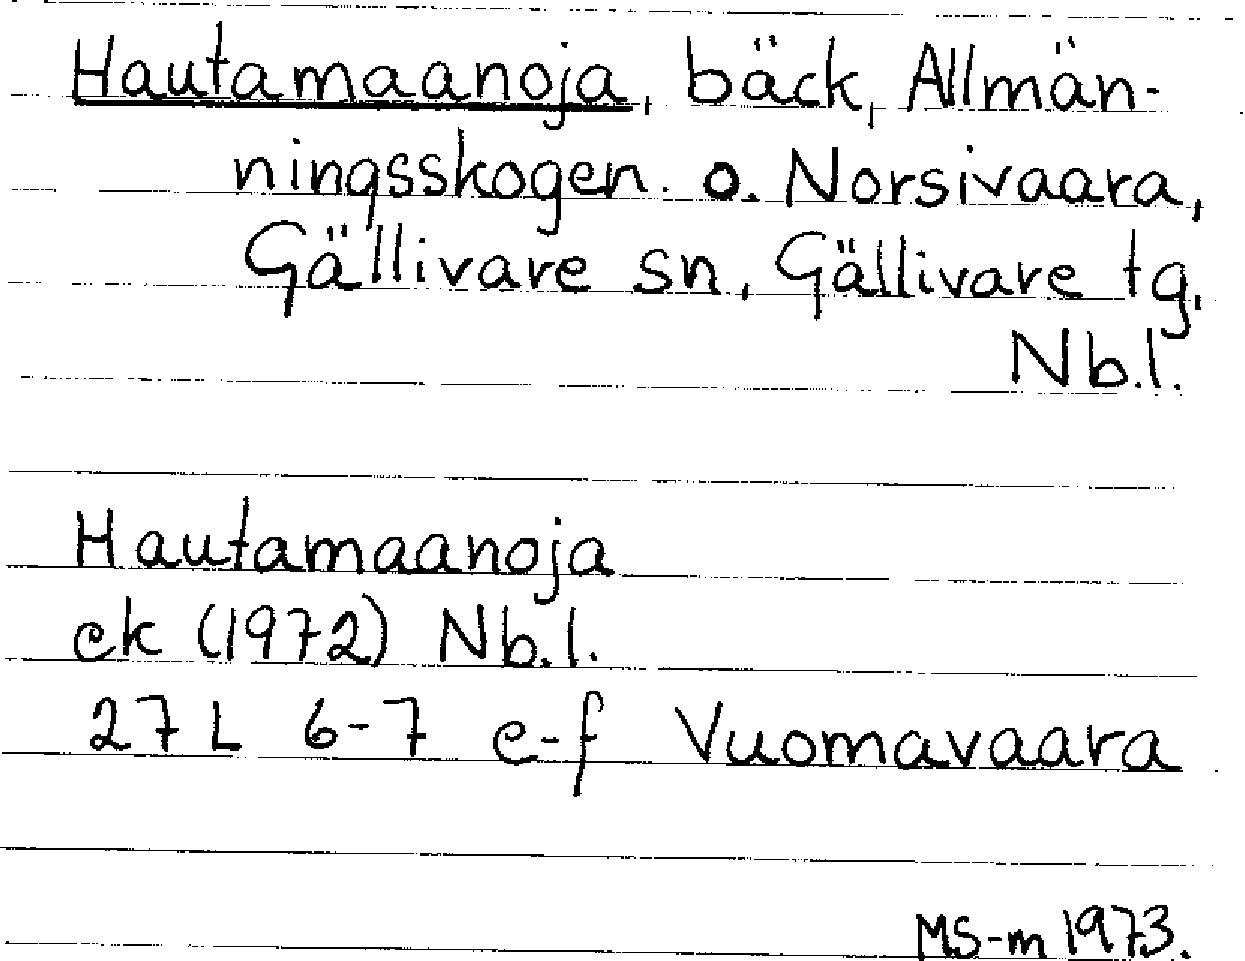 Hautamaanoja, bäck, Allmän-
ningsskogen. o. Norsivaara,
Gällivare sn, Gällivare tg,
Nb.l.
Hautamaanoja
ek (1972) Nb.l.
27 L 6-7 e-f Vuomavaara
MS-m 1973.